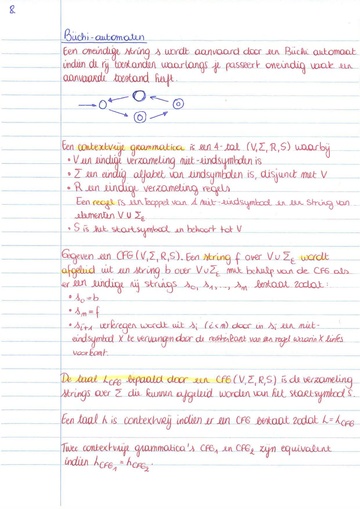 8.
Büchi-automaten
Een oneindige string s wordt aanvaard door een Büchi automaat
indien de rij toestanden waarlangs je passeert oneindig vaak een
aanvaarde toestand heeft.
Een contextvrije grammatica is een 4-tal (V, Σ, R, S) waarbij
• V een eindige verzameling niet-eindsymbolen is
• Σ een eindig alfabet van eindsymbolen is, disjunct met V
• R een eindige verzameling regels
Een regel is een koppel van 1 niet-eindsymbool en een string van
elementen V ∪ Σε
• S is het startsymbool en behoort tot V
Gegeven een CFG (V, Σ, R, S). Een string f over V ∪ Σε wordt
afgeleid uit een string b over V ∪ Σε met behulp van de CFG als
er een eindige rij strings s₀, s₁, ..., sₘ bestaat zodat:
• s₀ = b
• sₘ = f
• sᵢ₊₁ verkregen wordt uit sᵢ (i<m) door in sᵢ een niet-
eindsymbol X te vervangen door de rechterkant van een regel waarin X links
voorkomt.
De taal L_CFG bepaald door een CFG (V, Σ, R, S) is de verzameling
strings over Σ die kunnen afgeleid worden van het startsymbool S.
Een taal L is contextvrij indien er een CFG bestaat zodat L = L_CFG
Twee contextvrije grammatica's CFG₁ en CFG₂ zijn equivalent
indien L_CFG₁ = L_CFG₂.